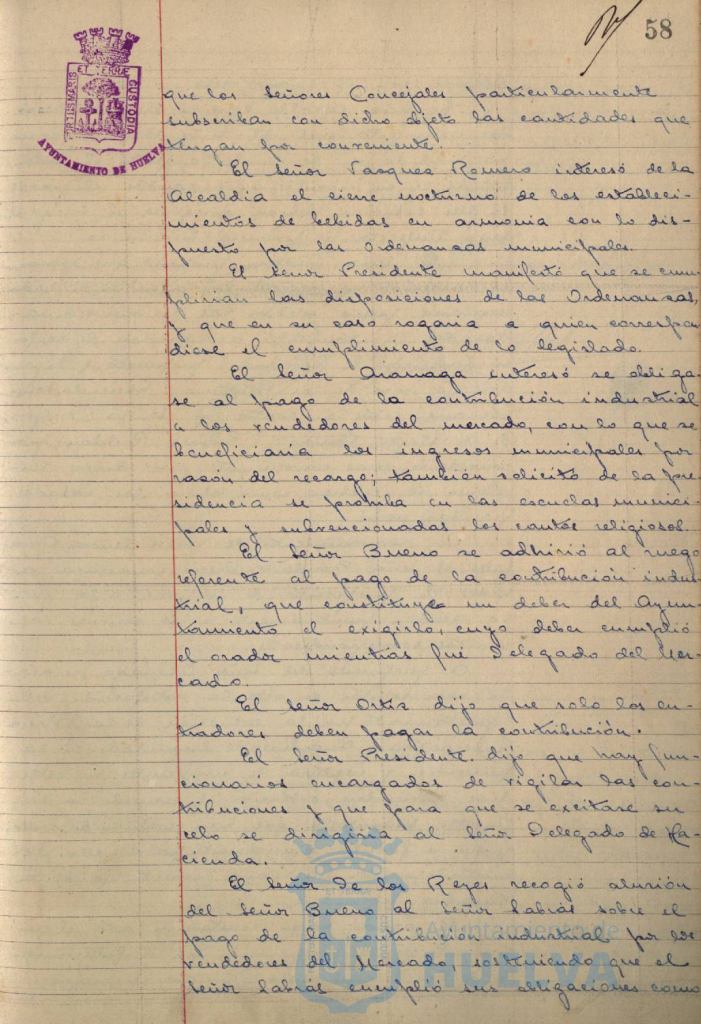 58
PORTUS MARIS ET TERRAE CUSTODIA
AYUNTAMIENTO DE HUELVA
que los señores Concejales particularmente
subscriban con dicho objeto las cantidades que
tengan por conveniente.
El señor Vasques Romero interesó de la
Alcaldia el cierre nocturno de los estableci-
mientos de bebidas en armonia con lo dis-
puesto por las Ordenansas municipales.
El señor Presidente manifestó que se cum-
plirian las disposiciones de las Ordenansas,
y que en su caso rogaria a quien correspon
diese el cumplimiento de lo legislado.
El señor interesó se obliga-
se al pago de la contribución industrial
a los vendedores del mercado, con lo que se
beneficiaria los ingresos municipales por
rasón del recargo; también solicitó de la pre
sidencia se prohiba en las escuelas munici-
pales y subvencionadas los cantos religiosos.
El señor Bueno se adhirió al ruego
referente al pago de la contribución indus-
trial, que constituye un deber del Ayun-
tamiento el exigirlo, cuyo deber cumplió
el orador mientras fué Delegado del Mer-
cado.
El señor Ortis dijo que solo los en-
tradores deben pagar la contribución.
El señor Presidente dijo que hay fun-
cionarios encargados de vigilar las con-
tribuciones y que para que se excitase su
celo se dirigiria al señor Delegado de Ha-
cienda.
El señor De los Reyes recogió alusión
del señor Bueno al señor Sabrás sobre el
pago de la contribución industrial por los
vendedores del Mercado, sosteniendo que el
señor Sabrás cumplió sus obligaciones como
Ayuntamiento de
HUELVA